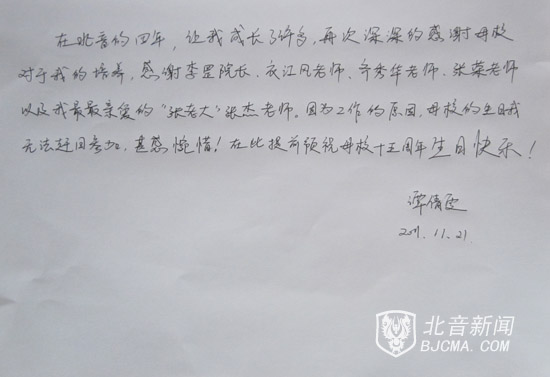 在北音的四年，让我成长了许多，再次深深的感谢母校
对于我的培养，感谢李罡院长、衣江凡老师、齐秀华老师、张蕊老师
以及我最最亲爱的“张老大”张杰老师。因为工作的原因，母校的生日我
无法赶回参加，甚感惋惜！在此提前预祝母校十五周年生日快乐！
谭倩
2011.11.21.
北音新闻
BJCMA. COM